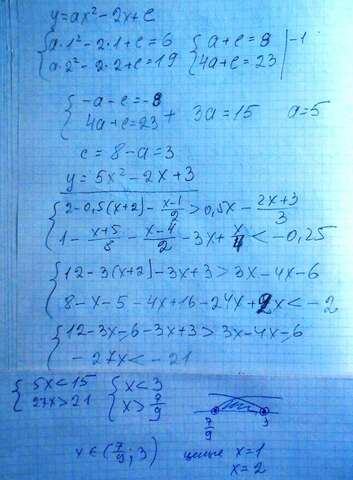 y=ax²-2x+c
{a·1²-2·1+c=6 {a+c=8 |-1
{a·2²-2·2+c=19 {4a+c=23
{-a-c=-8
{4a+c=23 + 3a=15 a=5
c=8-a=3
y=5x²-2x+3
{2-0,5(x+2)-\frac{x-1}{2}>0,5x-\frac{2x+3}{3}
{1-\frac{x+5}{8}-\frac{x-4}{2}-3x+\frac{x}{4}<-0,25
{12-3(x+2)-3x+3>3x-4x-6
{8-x-5-4x+16-24x+2x<-2
{12-3x-6-3x+3>3x-4x-6
{-27x<-21
{5x<15 {x<3
{27x>21 {x>\frac{7}{9}
\frac{7}{9} 3
x∈(\frac{7}{9};3) целые x=1
x=2